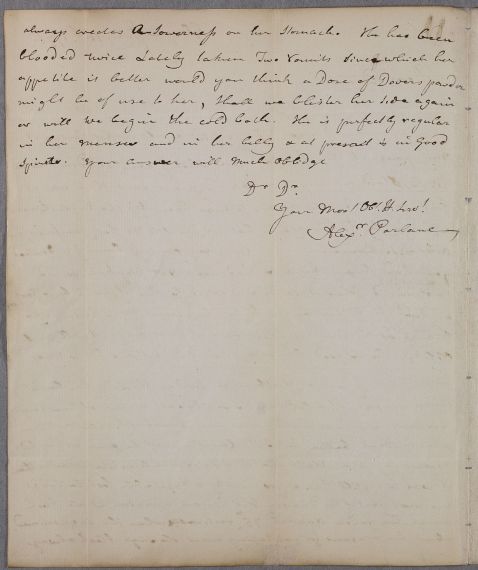 11
always creates A Sowerness on her Stomach. She has been
blooded twice Lately taken Two Vomits Since which her
appetite is better would you think a Dose of Dovers powder
might be of use to her, Shall we blister her Side again
or will we begin the cold bath. She is perfectly regular
in her menses and in her belly & at present is in Good
Spirits. Your Answer will Much Oblidge
Dr Dr.
Your Most Obt. H Servt.
Alexr. Parlane